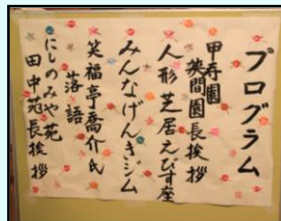 プログラム
甲寿園
狭間園長挨拶
人形芝居えびす座
みんなげんきジム
笑福亭喬介氏
落語
にしのみや苑
田中苑長挨拶